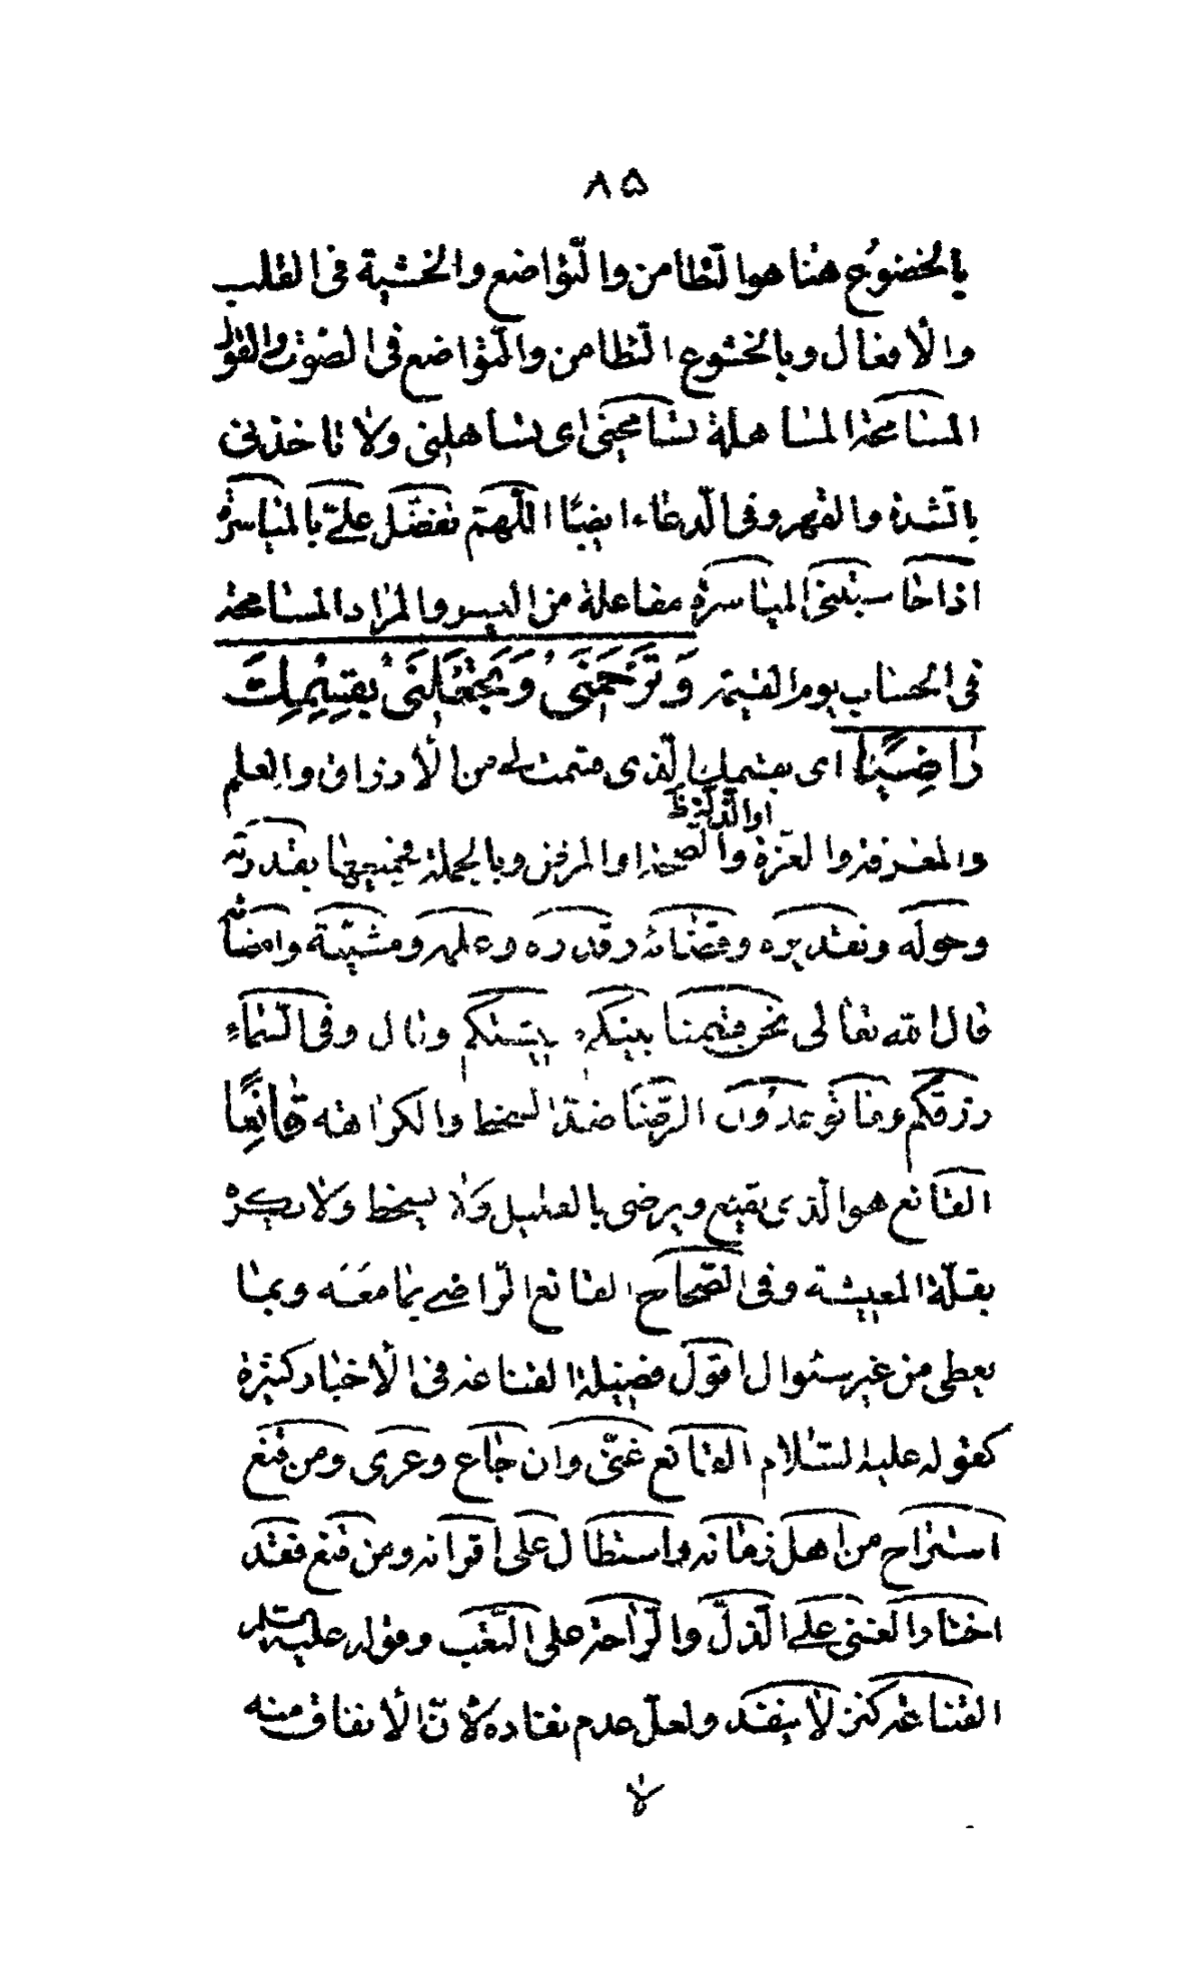 ٨٥
بالخضوع هنا هو التطامن والتواضع والخشية فى القلب
والأفعال وبالخشوع التطامن والتواضع فى الصوت والقول
المسامحة المساهلة تسامحنى اى تساهلنى ولا تاخذنى
بالشدة والقهر وفى الدعاء ايضا اللهم تفضل على بالمياسرة
اذا حاسبتنى المياسرة مفاعلة من اليسر والمراد المسامحة
فى الحساب يوم القيمة وَتَرْحَمَنى وَتَجْعَلَنى بِقِسْمِكَ
رَاضِيًا اى بقسمك الذى قسمت له من الأرزاق والعلم
او الذلة ظ
والمعرفة والعزة والصحة او المرض وبالجملة فجميعها بقدرته
وحوله وتقديره وقضائه وقدره وعلمه ومشيته وامضائه
قال الله تعالى نحن قسمنا بينكم معيشتكم وقال وفى السماء
رزقكم وما توعدون الرضا ضد السخط والكراهة قانِعًا
القانع هو الذى يقنع ويرضى بالقليل ولا يسخط ولا يكره
بقلة المعيشة وفى الصحاح القانع الراضى بما معه وبما
يعطى من غير سئوال اقول فضيلة القناعة فى الأخبار كثيرة
كقوله عليه السلام القانع غنى وان جاع وعرى ومن قنع
استراح من اهل زمانه واستطال على اقرانه ومن قنع فقد
اختار الغنى على الذل والراحة على التعب وقوله عليه السلم
القناعة كنز لا ينفد ولعل عدم نفاده لأن الأنفاق منه
لا